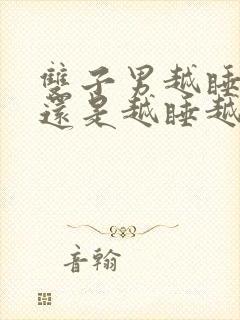 雙子男越睡
還是越睡越
音翰